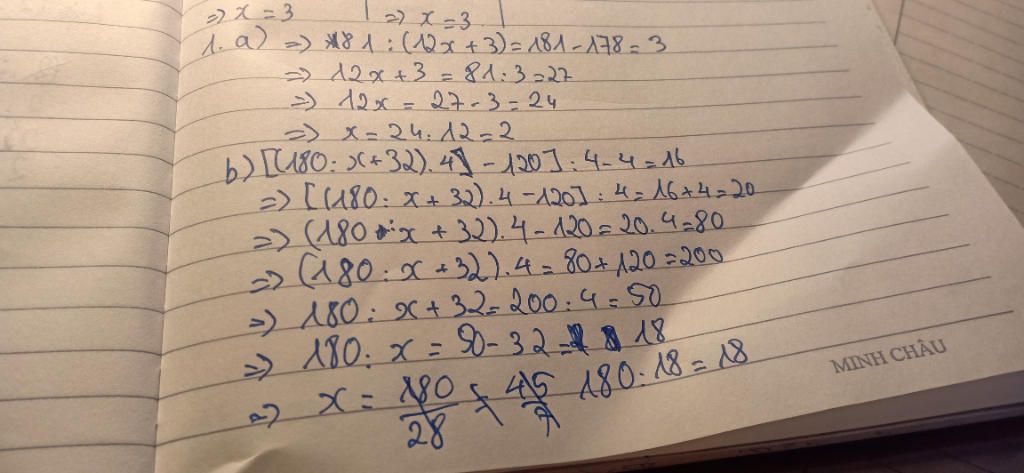 => x = 3 | => x = 3 |
1. a) => 81 : (12x + 3) = 181 - 178 = 3
=> 12x + 3 = 81 : 3 = 27
=> 12x = 27 - 3 = 24
=> x = 24 : 12 = 2
b) [(180 : x + 32) . 4 - 120] : 4 - 4 = 16
=> [(180 : x + 32) . 4 - 120] : 4 = 16 + 4 = 20
=> (180 : x + 32) . 4 - 120 = 20 . 4 = 80
=> (180 : x + 32) . 4 = 80 + 120 = 200
=> 180 : x + 32 = 200 : 4 = 50
=> 180 : x = 50 - 32 = 18
=> x = 180/28 = 45/7 180 : 18 = 18
MINH CHÂU